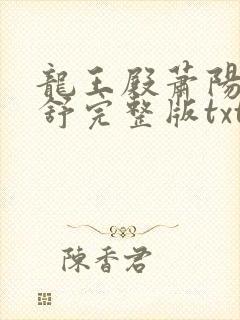 龍王殿蕭陽
舒完整版txt
陳香君